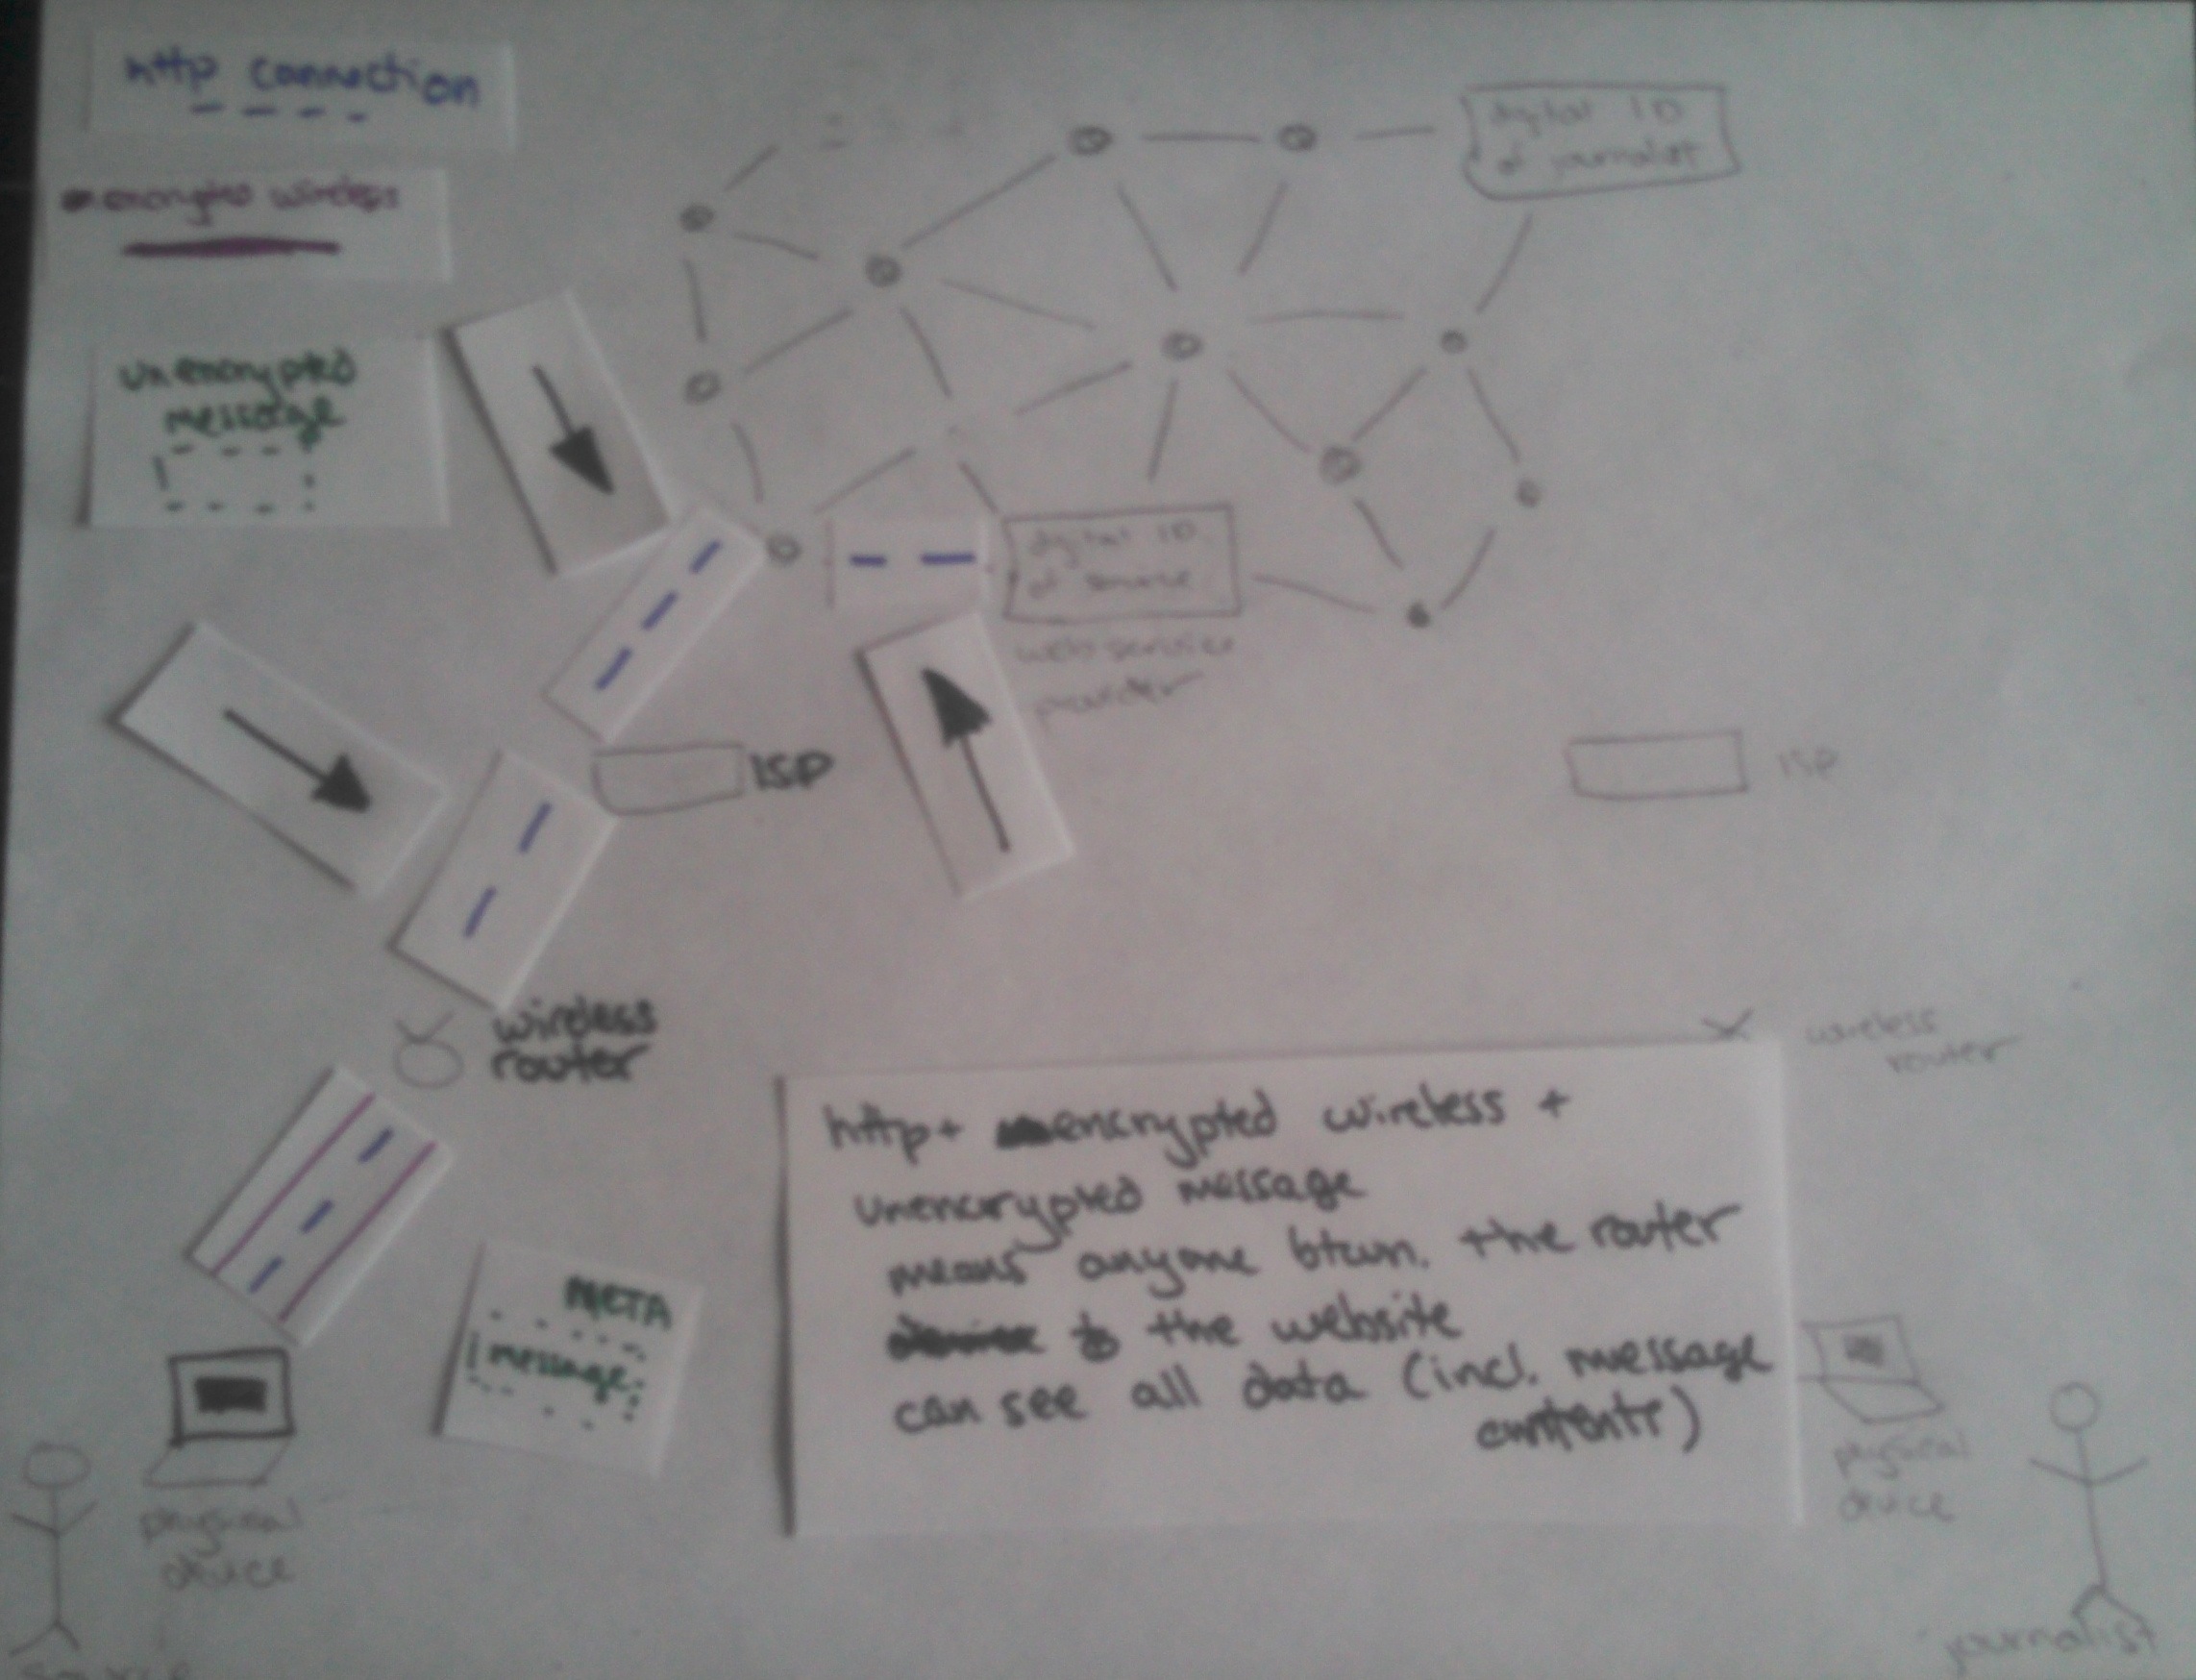 http connection
encrypted wireless
unencrypted
message
digital ID
of journalist
digital ID
of source
web service
provider
ISP
ISP
wireless
router
wireless
router
http + encrypted wireless +
unencrypted message
means anyone btwn. the router
to the website
can see all data (incl. message
contents)
META
message
physical
device
physical
device
source
journalist